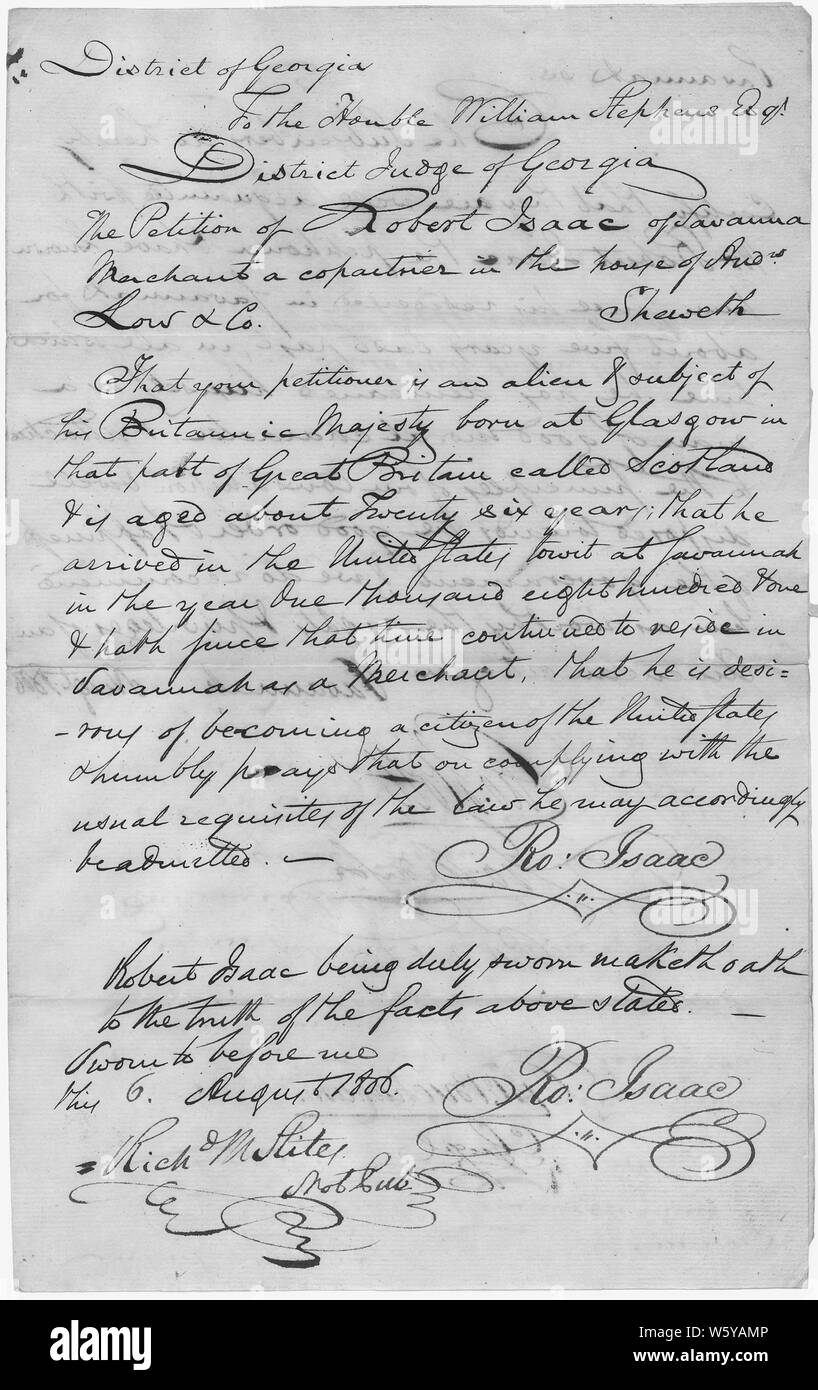 District of Georgia
To the Honble William Stephens Esqr.
District Judge of Georgia
The Petition of Robert Isaac of Savanna
Merchant a copartner in the house of Andw
Low & Co. Sheweth
That your petitioner is an alien & subject of
his Britannic Majesty born at Glasgow in
that part of Great Britain called Scotland
& is aged about Twenty six years; that he
arrived in the United States towit at Savannah
in the year One thousand eight hundred & one
& hath since that time continued to reside in
Savannah as a Merchant, that he is desi=
-rous of becoming a citizen of the United States
& humbly prays that on complying with the
usual requisites of the law he may accordingly
be admitted. —
Ro: Isaac
Robert Isaac being duly sworn maketh oath
to the truth of the facts above stated. —
Sworn to before me
this 6. August 1806.
Ro: Isaac
Richd M Stites
Not Pub
alamy
alamy
Image ID: W5YAMP
www.alamy.com